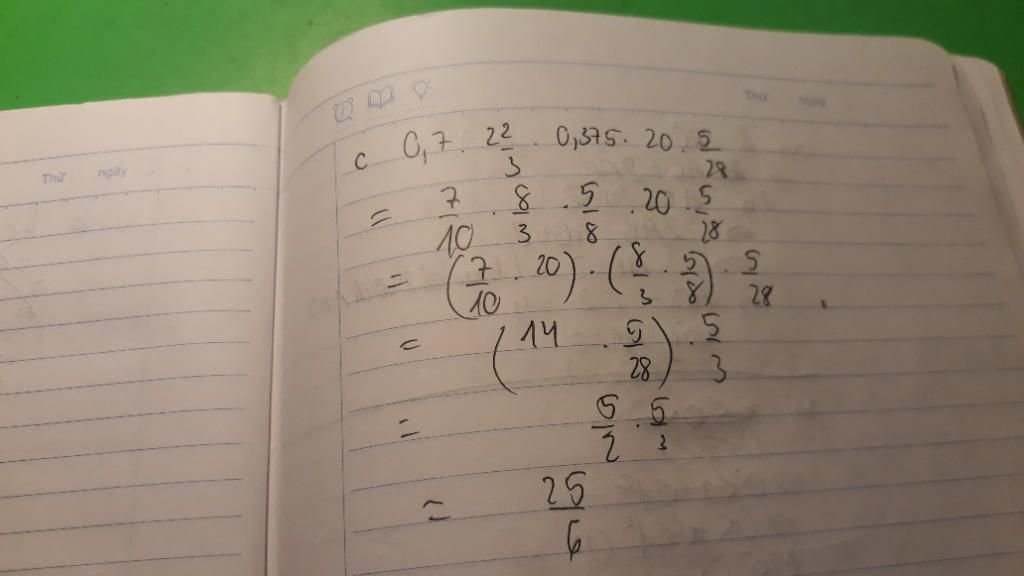 Thứ ngày
Thứ ngày
c 0,7 . 2 2/3 . 0,375 . 20 . 5/28
= 7/10 . 8/3 . 5/8 . 20 . 5/28
= (7/10 . 20) . (8/3 . 5/8) . 5/28
= (14 . 5/28) . 5/3
= 5/2 . 5/3
= 25/6